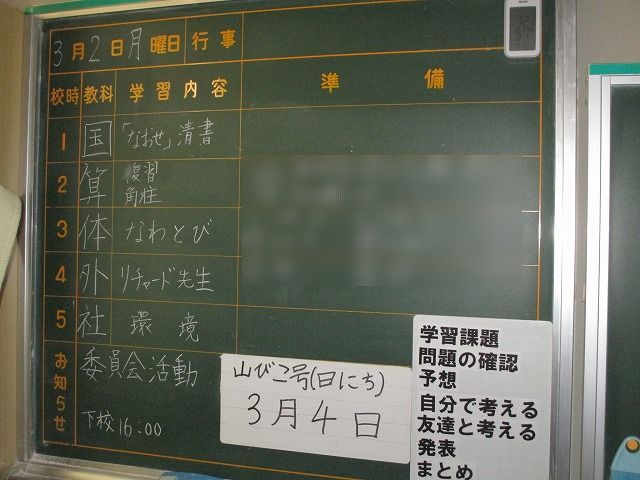 3月2日月曜日 行事
校時 教科 学習内容 準備
1 国 「なおせ」清書
2 算 復習
角柱
3 体 なわとび
4 外 リチャード先生
5 社 環境
お知らせ 委員会活動
下校16:00
山びこ号(日にち)
3月4日
学習課題
問題の確認
予想
自分で考える
友達と考える
発表
まとめ